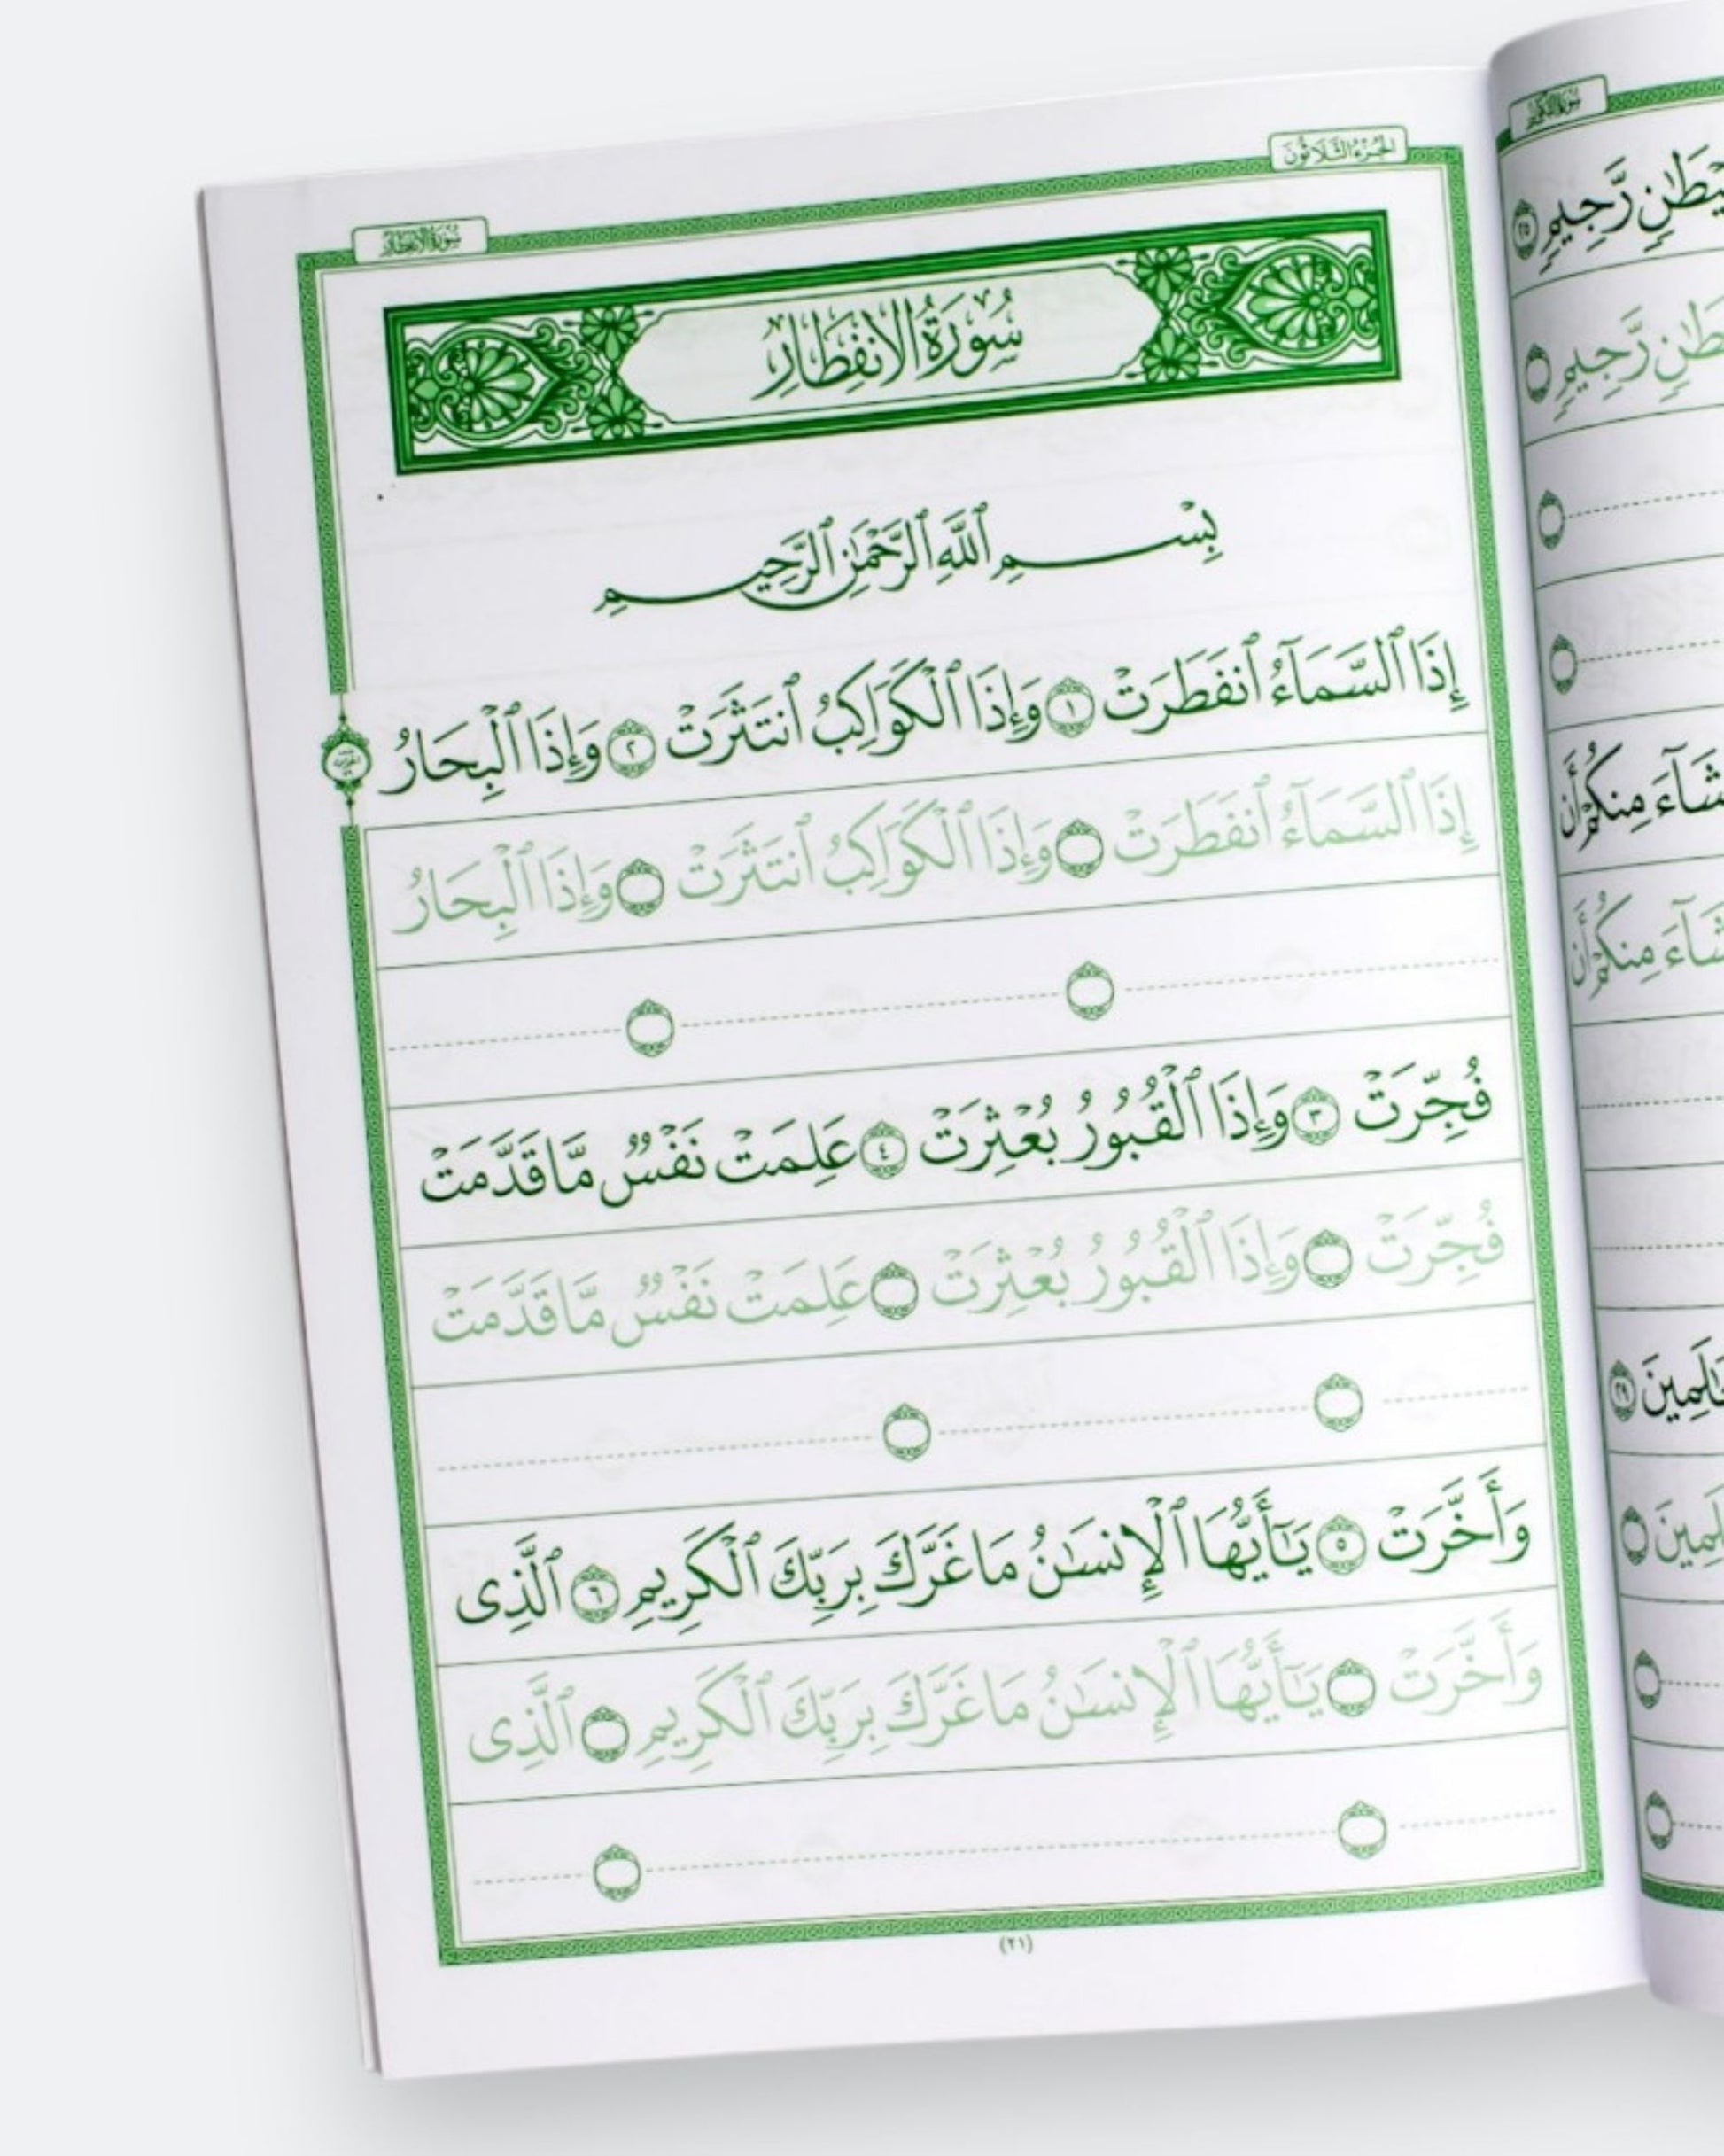 الجزء الثلاثون
سورة الانفطار
سُورَةُ الانفِطَارِ
بِسْمِ ٱللَّهِ ٱلرَّحْمَٰنِ ٱلرَّحِيمِ
إِذَا ٱلسَّمَآءُ ٱنفَطَرَتْ ١ وَإِذَا ٱلْكَوَاكِبُ ٱنتَثَرَتْ ٢ وَإِذَا ٱلْبِحَارُ
إِذَا ٱلسَّمَآءُ ٱنفَطَرَتْ وَإِذَا ٱلْكَوَاكِبُ ٱنتَثَرَتْ وَإِذَا ٱلْبِحَارُ
فُجِّرَتْ ٣ وَإِذَا ٱلْقُبُورُ بُعْثِرَتْ ٤ عَلِمَتْ نَفْسٌ مَّا قَدَّمَتْ
فُجِّرَتْ وَإِذَا ٱلْقُبُورُ بُعْثِرَتْ عَلِمَتْ نَفْسٌ مَّا قَدَّمَتْ
وَأَخَّرَتْ ٥ يَٰٓأَيُّهَا ٱلْإِنسَٰنُ مَا غَرَّكَ بِرَبِّكَ ٱلْكَرِيمِ ٦ ٱلَّذِى
وَأَخَّرَتْ يَٰٓأَيُّهَا ٱلْإِنسَٰنُ مَا غَرَّكَ بِرَبِّكَ ٱلْكَرِيمِ ٱلَّذِى
(٢١)
سورة التكوير
رَّجِيمٍ ٢٥
رَّجِيمٍ
مِنكُمْ أَن
مِنكُمْ أَن
٢٩